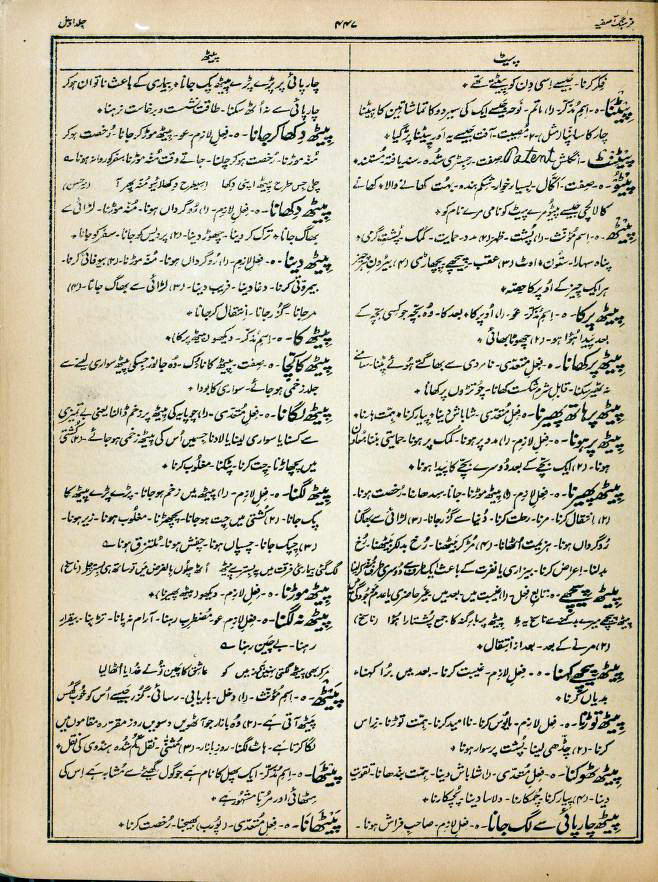 فرہنگ آصفیہ
۴۴۷
جلد اوّل
پیٹ
پیٹھ
فکر کرنا۔ جیسے اِسی دن کو پیٹتے تھے ٭
پیٹنا۔ ہ۔ اسمِ مذکر۔ (۱) ماتم۔ نوحہ جیسے ایک کی سیر دو کا تماشا تین کا پیٹنا
چار کا سیاپا (مثل) (۲) مصیبت۔ آفت جیسے یہ اَور پیٹنا پڑ گیا ٭
پیٹنٹ۔ انگلش Patent صفت۔ رجسٹری شدہ۔ سند یافتہ۔ مُستند ٭
پیٹو۔ ہ۔ صفت۔ اکّال۔ بسیار خوار۔ شکم بندہ۔ بہت کھانے والا۔ کھانے
کا لالچی جیسے پیٹو مرے پیٹ کو نامی مرے نام کو ٭
پیٹھ۔ ہ۔ اسمِ مؤنث۔ (۱) پُشت۔ ظہر (۲) مدد۔ حمایت۔ کمک۔ پُشت گرمی۔
پناہ۔ سہارا۔ ستون۔ اوٹ (۳) عقب۔ پیچھے۔ پچھاڑی (۴)
ہر ایک چیز کے اُوپر کا حصّہ ٭
پیٹھ پر کا۔ ہ۔ اسمِ مذکر۔ عو۔ (۱) اُوپر کا۔ بعد کا۔ وہ بچّہ جو کسی بچّہ کے
بعد پیدا ہُوا ہو۔ (۲) چھوٹا بھائی ٭
پیٹھ پر کھانا۔ ہ۔ فعل متعدی۔ نامردی سے بھاگتے ہوئے پٹنا۔ سامنے
نہ ٹھیرسکنا۔ قابلِ شرم شکست کھانا۔ چوتڑوں پر کھانا ٭
پیٹھ پر ہاتھ پھیرنا۔ ہ۔ فعل متعدی۔ شاباش دینا۔ پیار کرنا۔ ہمّت بڑھانا ٭
پیٹھ پر ہونا۔ ہ۔ فعل لازم۔ (۱) مدد پر ہونا۔ کمک پر ہونا۔ حمایتی بننا۔ معاون
ہونا۔ (۲) ایک بچّے کے بعد دُوسرے بچّے کا پیدا ہونا ٭
پیٹھ پھیرنا۔ ہ۔ فعل لازم۔ (۱) پیٹھ موڑنا۔ جانا۔ سدھانا۔ رُخصت ہونا۔
(۲) انتقال کرنا۔ مرنا۔ رحلت کرنا۔ دُنیا سے گُزر جانا۔ (۳) لڑائی سے بھاگنا
رُوگرداں ہونا۔ ہزیمت اُٹھانا۔ (۴) مُڑکر بیٹھنا۔ رُخ بدلکر بیٹھنا۔ رُخ
بدلنا۔ اعراض کرنا۔ بیزاری یا نفرت کے باعث ایک طرف سے دُوسری طرف
پیٹھ پیچھے۔ ہ۔ تابع فعل۔ (۱) غیبت میں۔ بعد میں۔ غیر حاضری یا عدم موجودگی
(۲) مرنے کے بعد۔ بعد از انتقال ٭
پیٹھ پیچھے کہنا۔ ہ۔ فعل لازم۔ غیبت کرنا۔ بعد میں بُرا کہنا۔
بدیاں کرنا ٭
پیٹھ توڑنا۔ ہ۔ فعل لازم۔ مایوس کرنا۔ نااُمید کرنا۔ ہمّت توڑنا۔ نراس
کرنا۔ (۲) چڈّھی لینا۔ پُشت پر سوار ہونا ٭
پیٹھ ٹھوکنا۔ ہ۔ فعل متعدی۔ (۱) شاباش دینا۔ ہمّت بندھانا۔ تقویت
دینا۔ (۲) پیار کرنا۔ چمکارنا۔ دلاسا دینا۔ پُچکارنا ٭
پیٹھ چارپائی سے لگ جانا۔ ہ۔ فعل لازم۔ صاحبِ فراش ہونا۔
چارپائی پر پڑے پڑے پیٹھ پک جانا۔ بیماری کے باعث ناتوان ہوکر
چارپائی سے نہ اُٹھ سکنا۔ طاقتِ نشست و برخاست نہ رہنا ٭
پیٹھ دکھا کر جانا۔ ہ۔ فعل لازم۔ عو۔ پیٹھ موڑکر جانا۔ رُخصت ہوکر
مُنہ موڑنا۔ رُخصت ہوکر چلنا۔ جاتے وقت مُنہ موڑنا۔ سفر کو روانہ ہونا ؎
چلے جس طرح پیٹھ اپنی دکھا اسیطرح دکھلائیو مُنہ پھر آ (میر حسن)
پیٹھ دکھانا۔ ہ۔ فعل لازم۔ (۱) رُوگرداں ہونا۔ مُنہ موڑنا۔ لڑائی سے
بھاگ جانا۔ ترک کر دینا۔ چھوڑ دینا۔ (۲) پردیس کو جانا۔ سفر کو جانا ٭
پیٹھ دینا۔ ہ۔ فعل لازم۔ (۱) رُوگرداں ہونا۔ مُنہ موڑنا۔ (۲) بیوفائی کرنا۔
بیمروّتی کرنا۔ دغا دینا۔ فریب دینا۔ (۳) لڑائی سے بھاگ جانا۔ (۴)
مر جانا۔ گُزر جانا۔ انتقال کر جانا ٭
پیٹھ کا۔ ہ۔ اسمِ مذکر۔ دیکھو (پیٹھ پر کا) ٭
پیٹھ کا کچّا۔ ہ۔ صفت۔ پیٹھ کا نازک۔ وہ جانور جسکی پیٹھ سواری لینے سے
جلد زخمی ہو جائے۔ سواری کا بودا ٭
پیٹھ لگانا۔ ہ۔ فعل متعدی۔ (۱) چوپایہ کی پیٹھ پر زخم ڈالنا یعنی بے تمیزی
سے کسنا یا سواری لینا یا لادنا جسمیں اُس کی پیٹھ زخمی ہو جائے۔ (۲) کُشتی
میں پچھاڑنا۔ چت کرنا۔ پٹکنا۔ مغلوب کرنا ٭
پیٹھ لگنا۔ ہ۔ فعل لازم۔ (۱) پیٹھ میں زخم ہو جانا۔ پڑے پڑے پیٹھ کا
پک جانا۔ (۲) کُشتی میں چت ہو جانا۔ پچھڑنا۔ مغلوب ہونا۔ زیر ہونا۔
(۳) چپک جانا۔ چسپاں ہونا۔ چفش ہونا۔ مُلتزق ہونا ؎
پیٹھ موڑنا۔ ہ۔ فعل لازم۔ دیکھو (پیٹھ پھیرنا) ٭
پیٹھ نہ لگنا۔ ہ۔ فعل لازم۔ عو۔ مُضطرب رہنا۔ آرام نہ پانا۔ تڑپنا۔ بیقرار
رہنا۔ بے چین رہنا ؎
پَیٹھ۔ ہ۔ اسمِ مؤنث۔ (۱) دخل۔ باریابی۔ رسائی۔ گُزر جیسے اُس کو خوب گھُس
پیٹھ آتی ہے۔ (۲) وُہ بازار جو آٹھویں دسویں روز مقررہ مقاموں میں
لگا کرتا ہے۔ ہاٹ لگنا۔ روز بازار۔ (۳) مُثنّٰی۔ نقل گُم شُدہ ہنڈوی کی نقل ٭
پیٹھا۔ ہ۔ اسمِ مذکر۔ ایک پھل کا نام ہے جو گول گھیے سے مُشابہ ہے اِس کی
مٹھائی اور مُربّا مشہور ہے ٭
پَیٹھانا۔ ہ۔ فعل متعدی۔ (پُورب) بھیجنا۔ رُخصت کرنا ٭